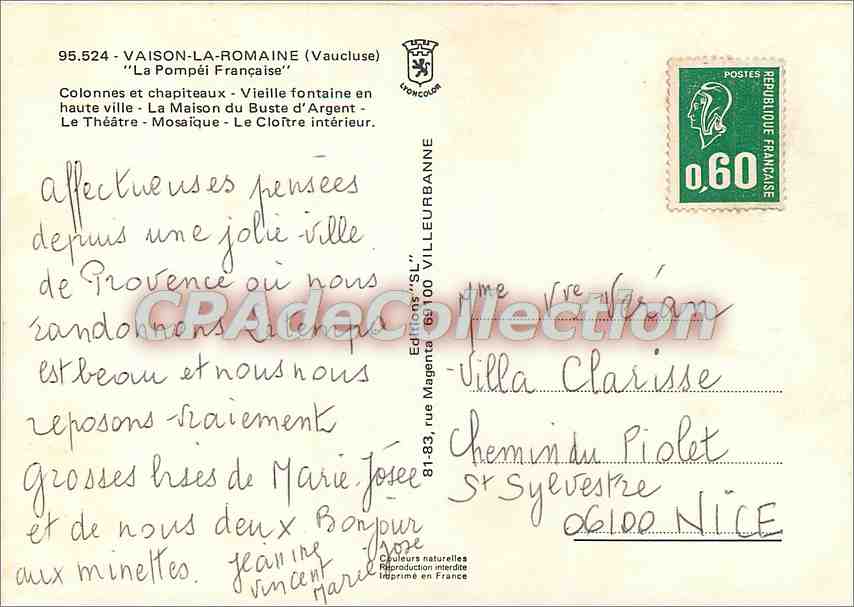 95.524 - VAISON-LA-ROMAINE (Vaucluse)
"La Pompéi Française"
Colonnes et chapiteaux - Vieille fontaine en
haute ville - La Maison du Buste d'Argent -
Le Théâtre - Mosaïque - Le Cloître intérieur.
LYONCOLOR
POSTES
RÉPUBLIQUE FRANÇAISE
0,60
affectueuses pensées
depuis une jolie ville
de Provence où nous
randonnons. Le temps
est beau et nous nous
reposons vraiement
Grosses bises de Marie-Josée
et de nous deux. Bonjour
aux minettes.
Jeanine
Vincent
Marie José
Editions "SL"
81-83, rue Magenta - 69100 VILLEURBANNE
Mme Vve Véran
Villa Clarisse
Chemin du Piolet
St Sylvestre
06100 NICE
Couleurs naturelles
Reproduction interdite
Imprimé en France
CPAdeCollection.com